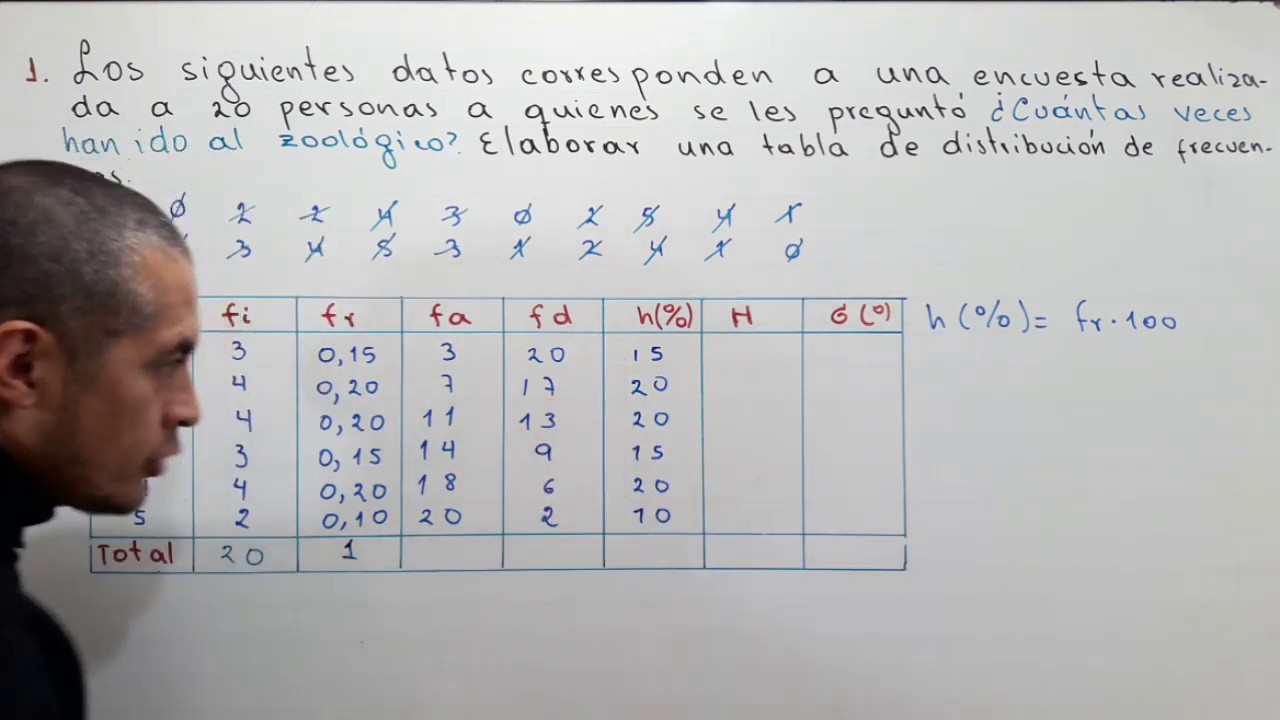 1. Los siguientes datos corresponden a una encuesta realiza-
da a 20 personas a quienes se les preguntó ¿Cuántas veces
han ido al zoológico? Elaborar una tabla de distribución de frecuen-
0 2 2 4 3 0 2 5 4 1
3 4 5 3 1 2 4 1 0
fi fr fa fd h(%) H G(°) h(%)= fr.100
3 0,15 3 20 15
4 0,20 7 17 20
4 0,20 11 13 20
3 0,15 14 9 15
4 0,20 18 6 20
5 2 0,10 20 2 10
Total 20 1